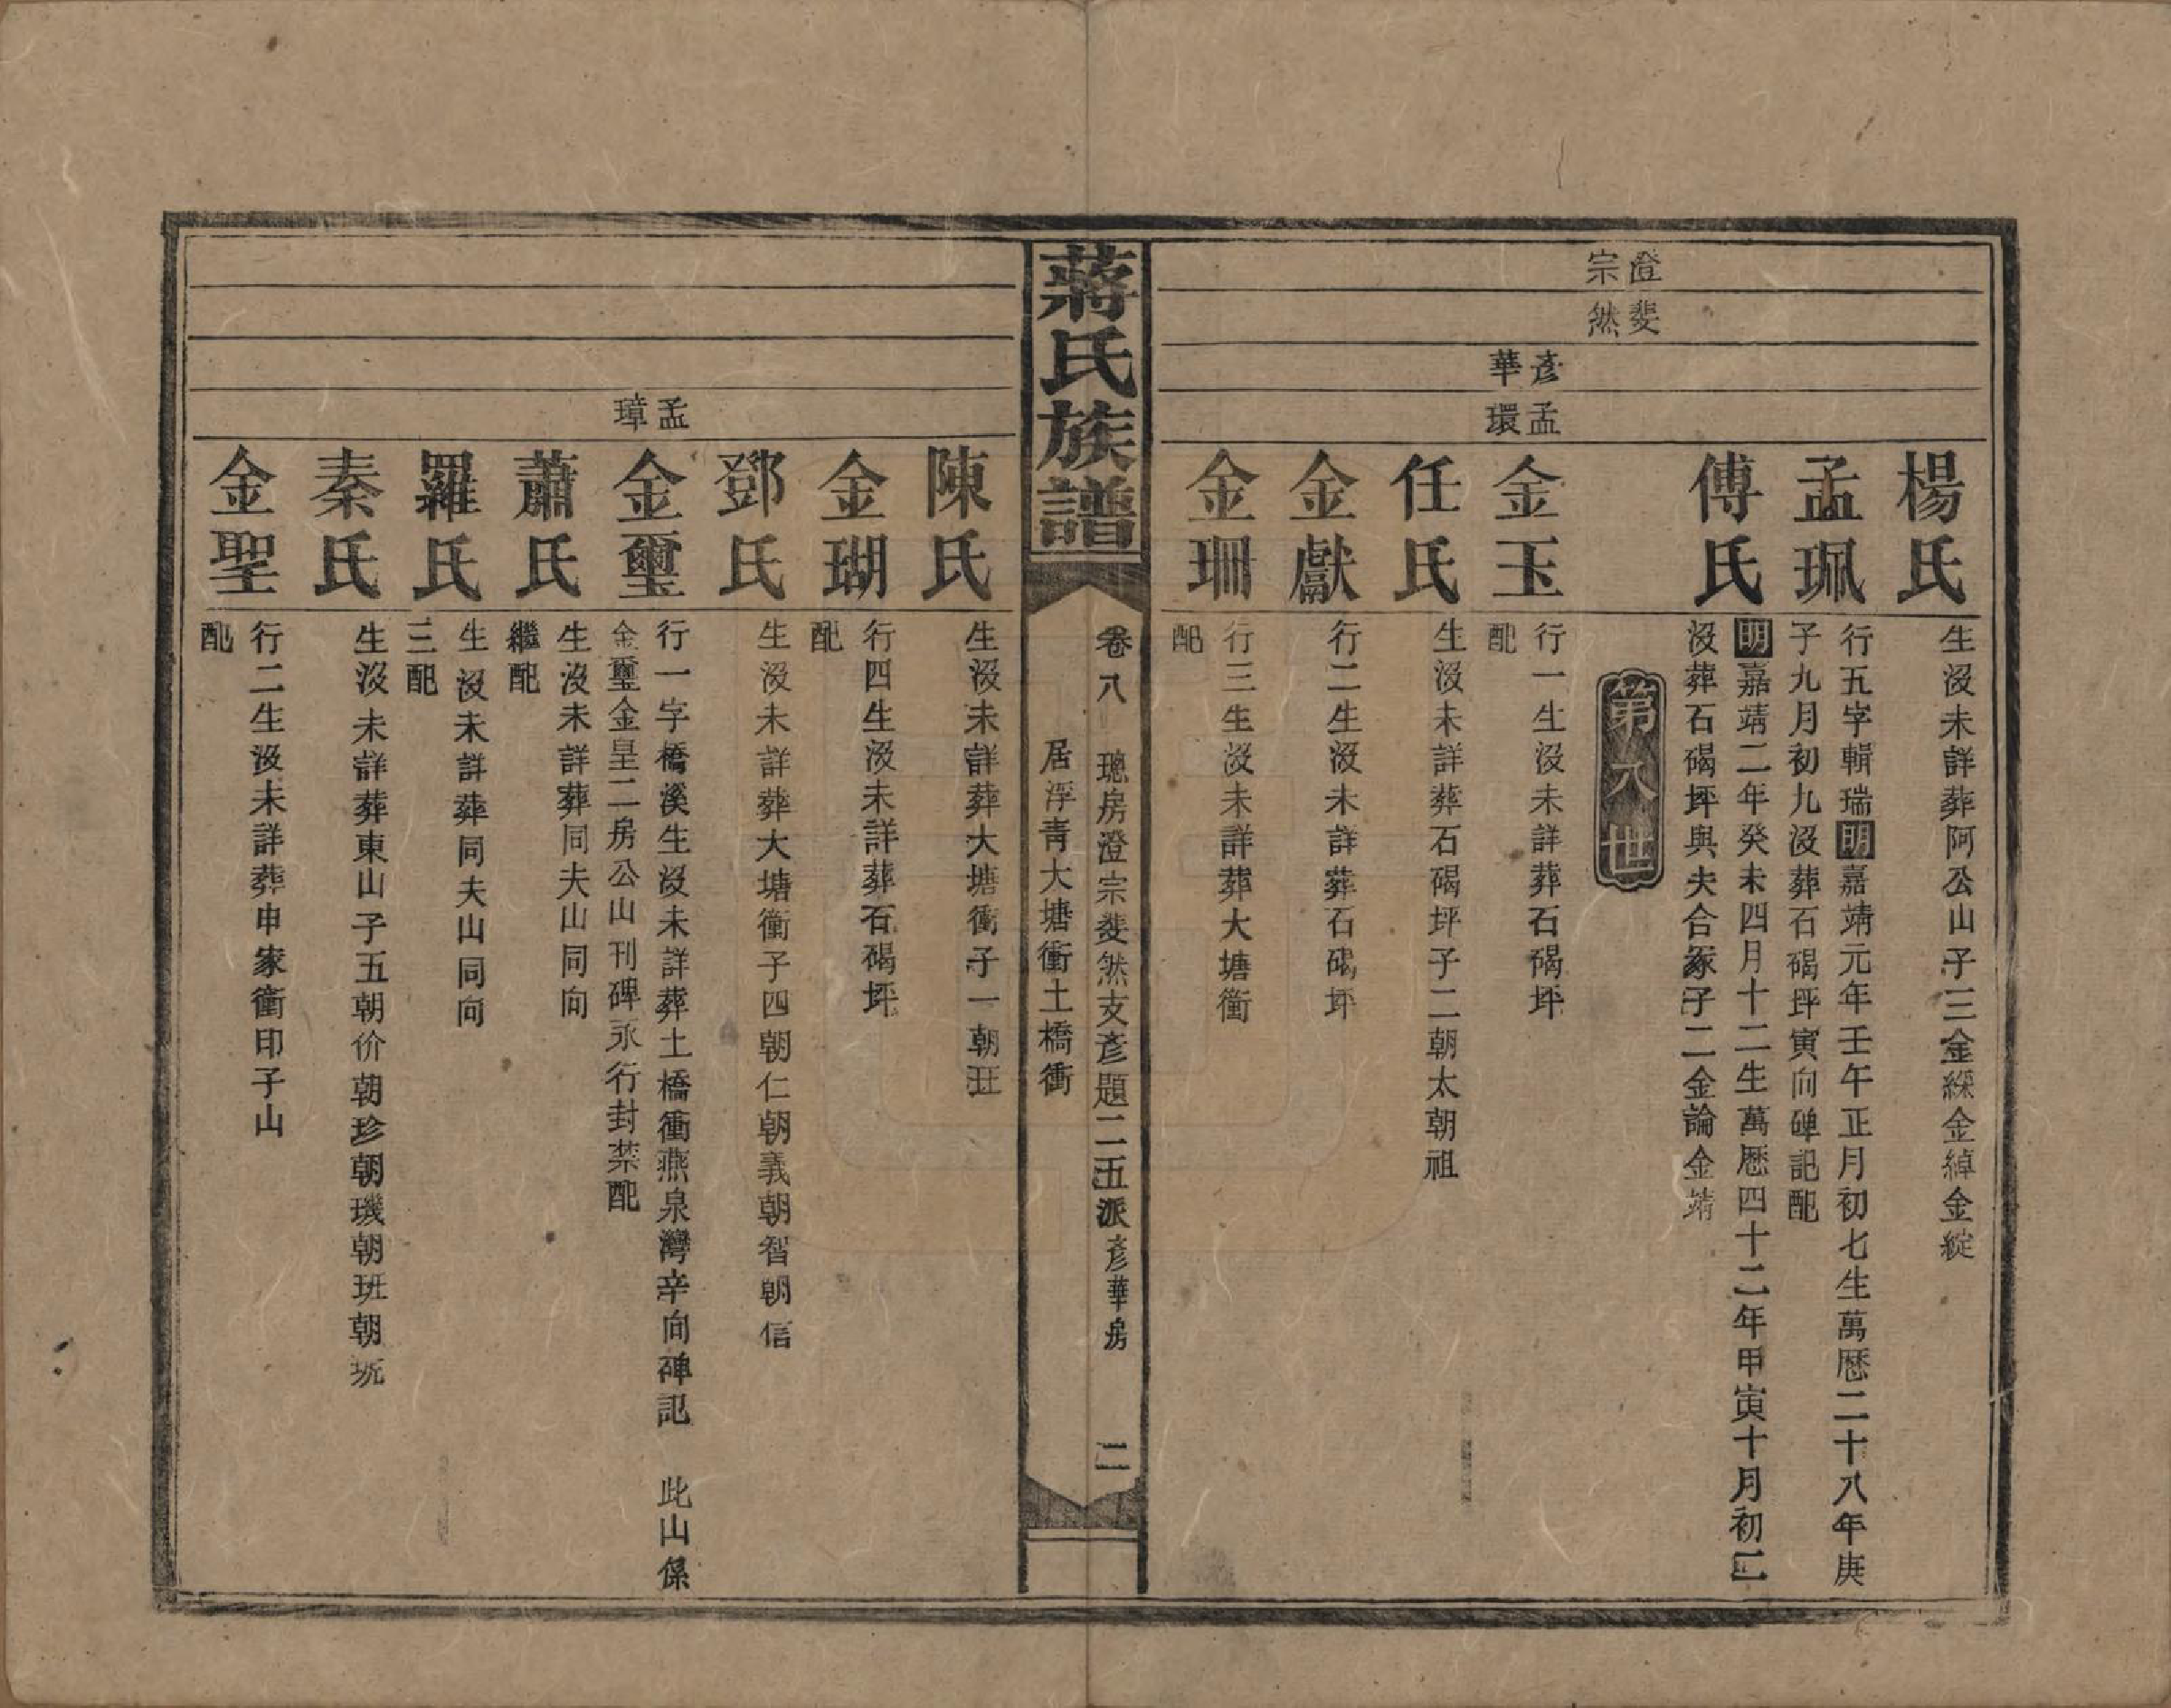 楊氏
生沒未詳葬阿公山子三金綵金綽金綻
孟珮
行五字輯瑞明嘉靖元年壬午正月初七生萬曆二十八年庚
子九月初九沒葬石碣坪寅向碑記配
傅氏
明嘉靖二年癸未四月十二生萬曆四十二年甲寅十月初二
沒葬石碣坪與夫合冢子二金論金靖
澄宗
斐然
第八世
彥華
孟環
金玉
行一生沒未詳葬石碣坪
配
任氏
生沒未詳葬石碣坪子二朝太朝祖
金獻
行二生沒未詳葬石碣坪
金珊
行三生沒未詳葬大塘衝
配
蔣氏族譜
卷八
璁房澄宗斐然支彥題二五派彥華房
居浮青大塘衝土橋衝
二
陳氏
生沒未詳葬大塘衝子一朝玨
金瑚
行四生沒未詳葬石碣坪
配
鄧氏
生沒未詳葬大塘衝子四朝仁朝義朝智朝信
孟璋
金璽
行一字橋溪生沒未詳葬土橋衝燕泉灣辛向碑記 此山係
金璽金皇二房公山刊碑永行封禁配
蕭氏
生沒未詳葬同夫山同向
繼配
羅氏
生沒未詳葬同夫山同向
三配
秦氏
生沒未詳葬東山子五朝价朝珍朝璣朝班朝琉
金聖
行二生沒未詳葬申家衝印子山
配